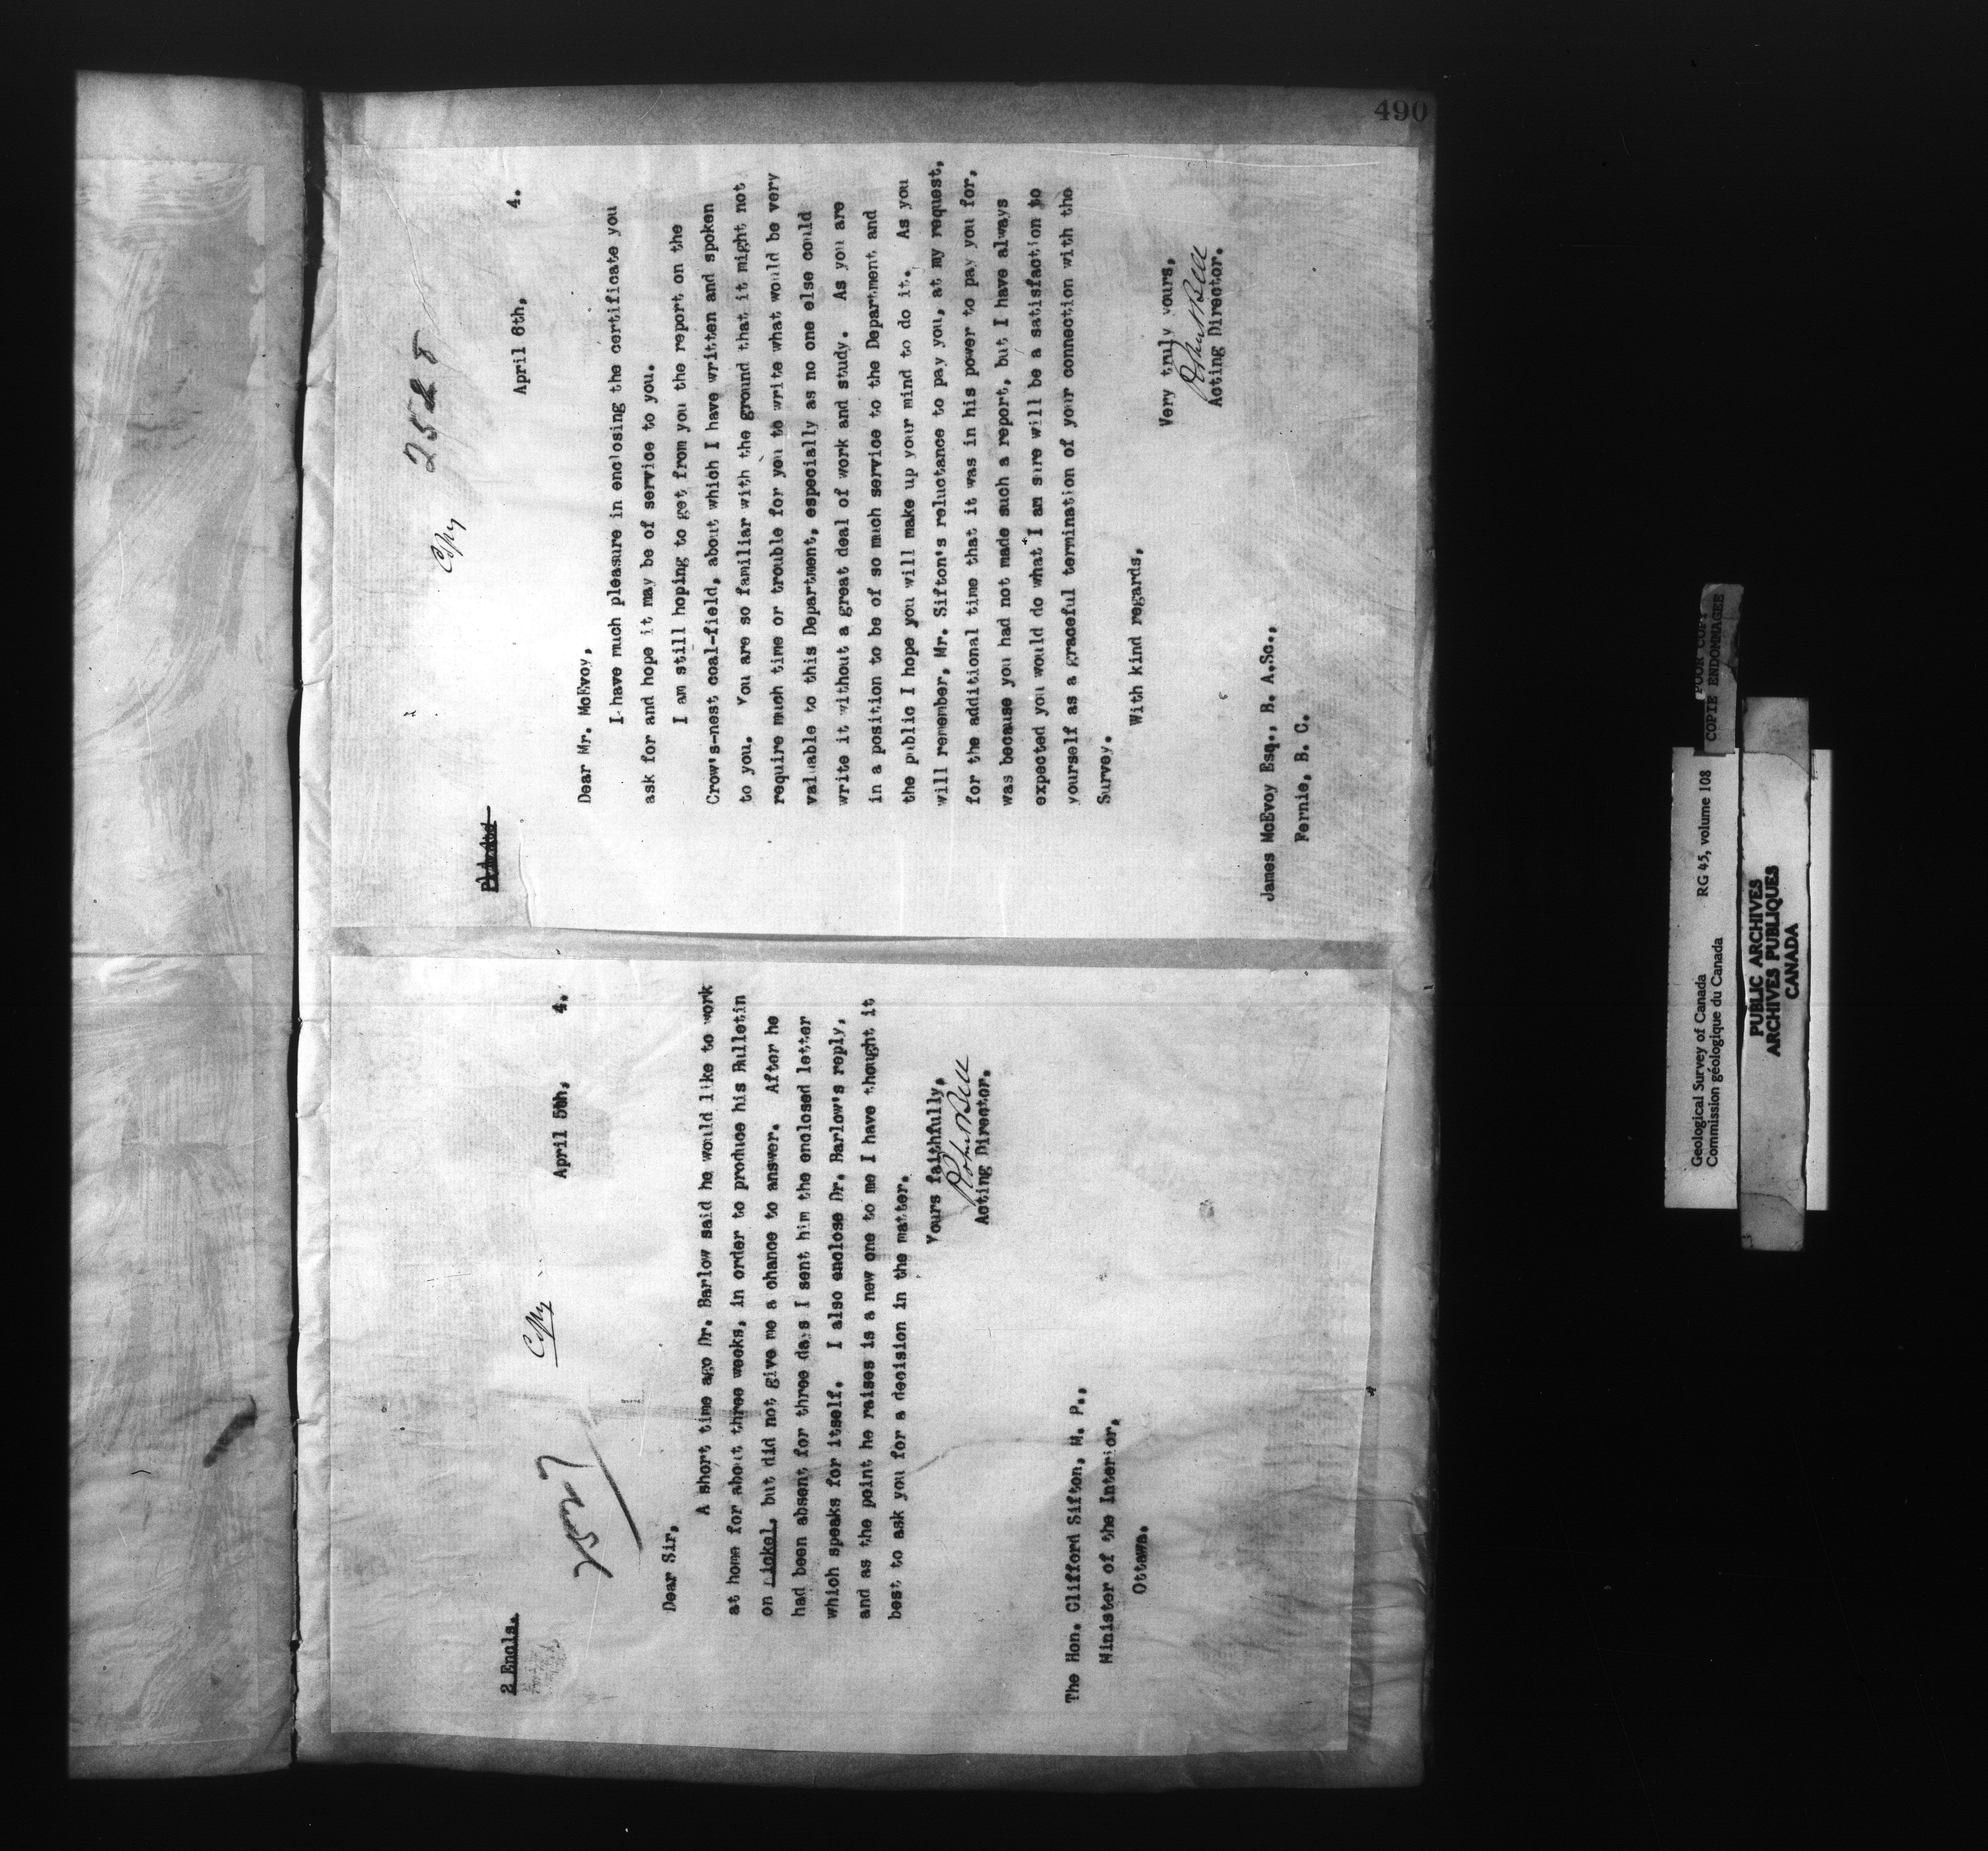 490
2 Encls.
Copy
2527
April 5th, 4.
Dear Sir,
A short time ago Dr. Barlow said he would like to work
at home for about three weeks, in order to produce his Bulletin
on nickel, but did not give me a chance to answer. After he
had been absent for three days I sent him the enclosed letter
which speaks for itself. I also enclose Dr. Barlow's reply,
and as the point he raises is a new one to me I have thought it
best to ask you for a decision in the matter.
Yours faithfully,
Robert Bell
Acting Director.
The Hon. Clifford Sifton, M. P.,
Minister of the Interior,
Ottawa.
Copy
2528
April 6th, 4.
Dear Mr. McEvoy,
I have much pleasure in enclosing the certificate you
ask for and hope it may be of service to you.
I am still hoping to get from you the report on the
Crow's-nest coal-field, about which I have written and spoken
to you. You are so familiar with the ground that it might not
require much time or trouble for you to write what would be very
valuable to this Department, especially as no one else could
write it without a great deal of work and study. As you are
in a position to be of so much service to the Department and
the public I hope you will make up your mind to do it. As you
will remember, Mr. Sifton's reluctance to pay you, at my request,
for the additional time that it was in his power to pay you for,
was because you had not made such a report, but I have always
expected you would do what I am sure will be a satisfaction to
yourself as a graceful termination of your connection with the
Survey.
With kind regards,
Very truly yours,
Robert Bell
Acting Director.
James McEvoy Esq., B. A.Sc.,
Fernie, B. C.
POOR COPY
COPIE ENDOMMAGEE
Geological Survey of Canada RG 45, volume 108
Commission géologique du Canada
PUBLIC ARCHIVES
ARCHIVES PUBLIQUES
CANADA